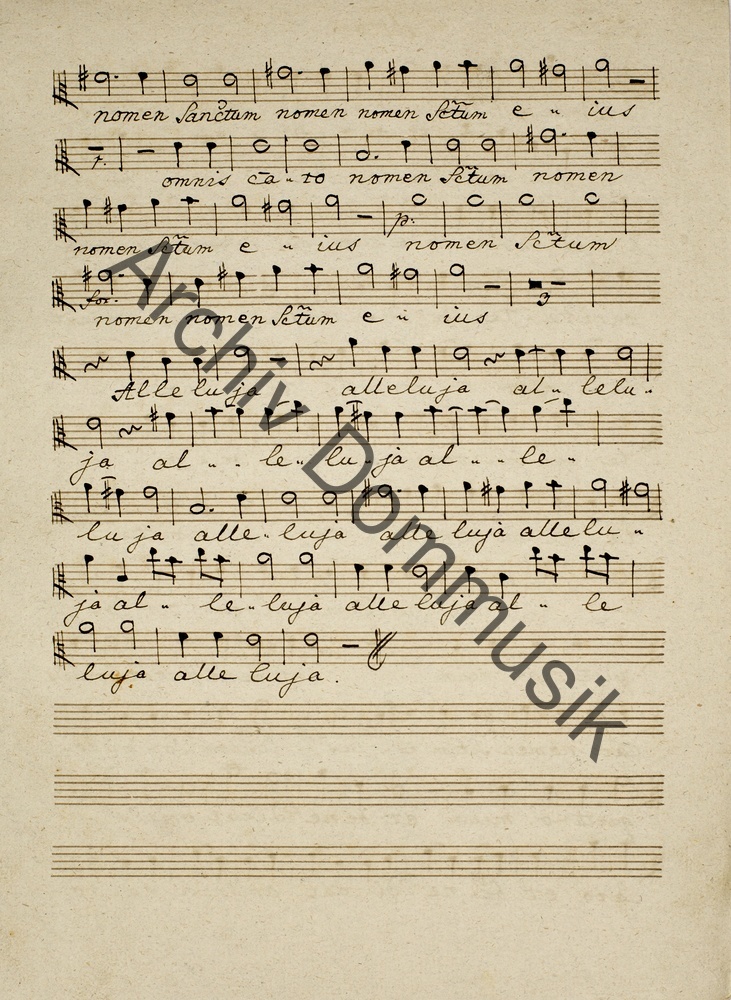 nomen Sanctum nomen nomen Sctum e " ius
t.
omnis ca " to nomen Sctum nomen
p:
nomen Sctum e " ius nomen Sctum
for:
nomen nomen Sctum e " ius
3
Alleluja alleluja al " lelu "
ja al " " le " lu " ja al " " le "
lu ja alle " luja alle luja allelu "
ja al " le " luja alle luja al " le
luja alle luja .
Archiv Dommusik